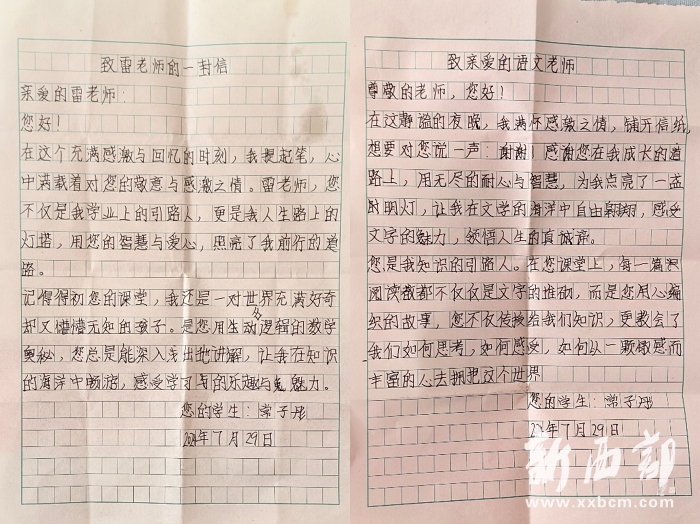 致雷老师的一封信
亲爱的雷老师:
您好!
在这个充满感激与回忆的时刻,我提起笔,心
中满载着对您的敬意与感激之情。雷老师,您
不仅是我学业上的引路人,更是我人生路上的
灯塔,用您的智慧与爱心,照亮了我前行的道
路。
记得得初您的课堂,我还是一对世界充满好奇
却又懵懂无知的孩子。是您用生动逻辑的数学
奥秘,您总是能深入浅出地讲解,让我在知识
的海洋中畅游,感受学习的乐趣与魅力。
您的学生:常子彤
2024年7月29日
致亲爱的语文老师
尊敬的老师,您好!
在这静谧的夜晚,我满怀感激之情,铺开信纸,
想要对您说一声:谢谢!感谢您在我成长的道
路上,用无尽的耐心与智慧,为我点亮了一盏
的明灯,让我在文学的海洋中自由翱翔,感受
文字的魅力,领悟人生的真谛。
您是我知识的引路人。在您课堂上,每一篇
阅读都不仅仅是文字的堆砌,而是您用心编
织的故事,您不仅传授给我们知识,更教会了
我们如何思考,如何感受,如何从一颗敏感而
丰富的心去拥抱这个世界
您的学生:常子彤
2024年7月29日
新西部
www.xxbcm.com